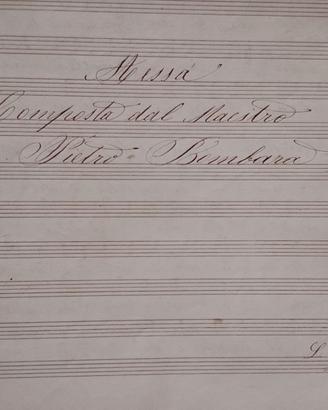 Messa
Composta dal Maestro
Pietro Bombara